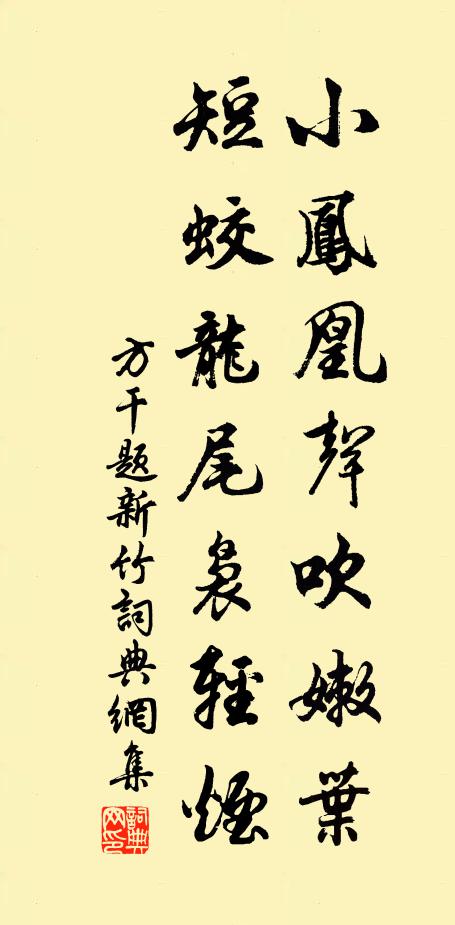 小鳳凰聲吹嫩葉
短蛟龍尾裊輕煙
方干題新竹詞典網集
詞典網印